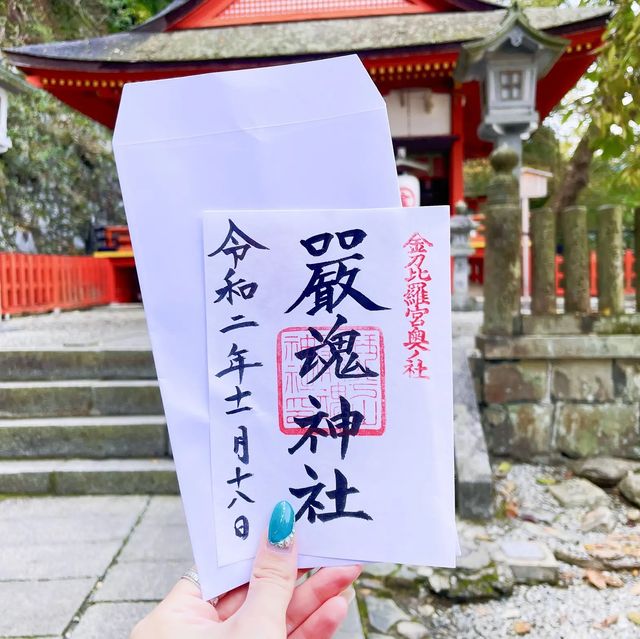 金刀比羅宮奥ノ社
嚴魂神社
令和二年十一月十八日